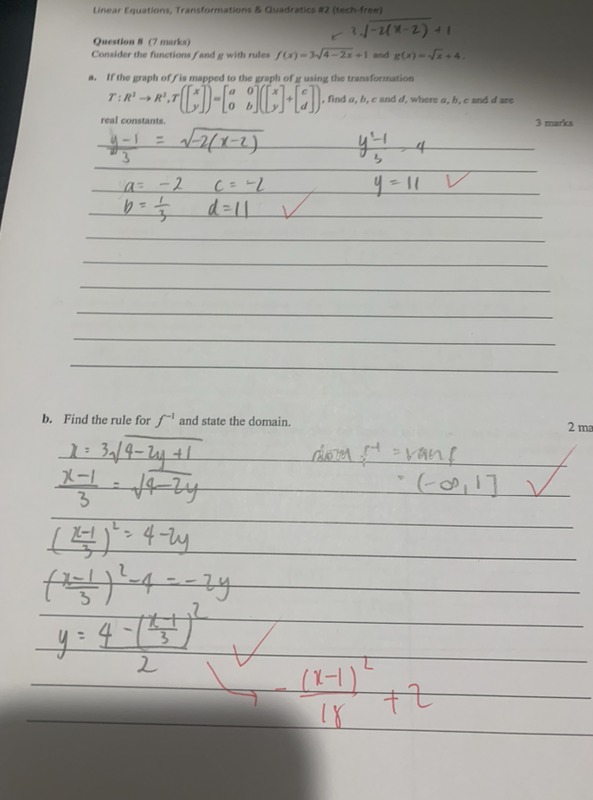 Linear Equations, Transformations & Quadratics #2 (tech-free)
3√-2(x-2) +1
Question 8 (7 marks)
Consider the functions f and g with rules f(x)=3√4-2x+1 and g(x)=√x+4.
a. If the graph of f is mapped to the graph of g using the transformation
T:R²→R²,T([x y])=[a 0 0 b]([x y]+[c d]), find a, b, c and d, where a, b, c and d are
real constants.
3 marks
y-1/3 = √-2(x-2)
y'-1/3 4
a= -2 c= -2
y = 11 ✓
b= 1/3 d=11 ✓
b. Find the rule for f⁻¹ and state the domain.
2 ma
x = 3√4-2y+1
dom f⁻¹ = ran f
x-1/3 = √4-2y
(-∞, 1] ✓
(x-1/3)² = 4-2y
(x-1/3)² -4 = -2y
y = 4-(x-1/3)²/2 ✓
→ -(x-1)²/18 +2